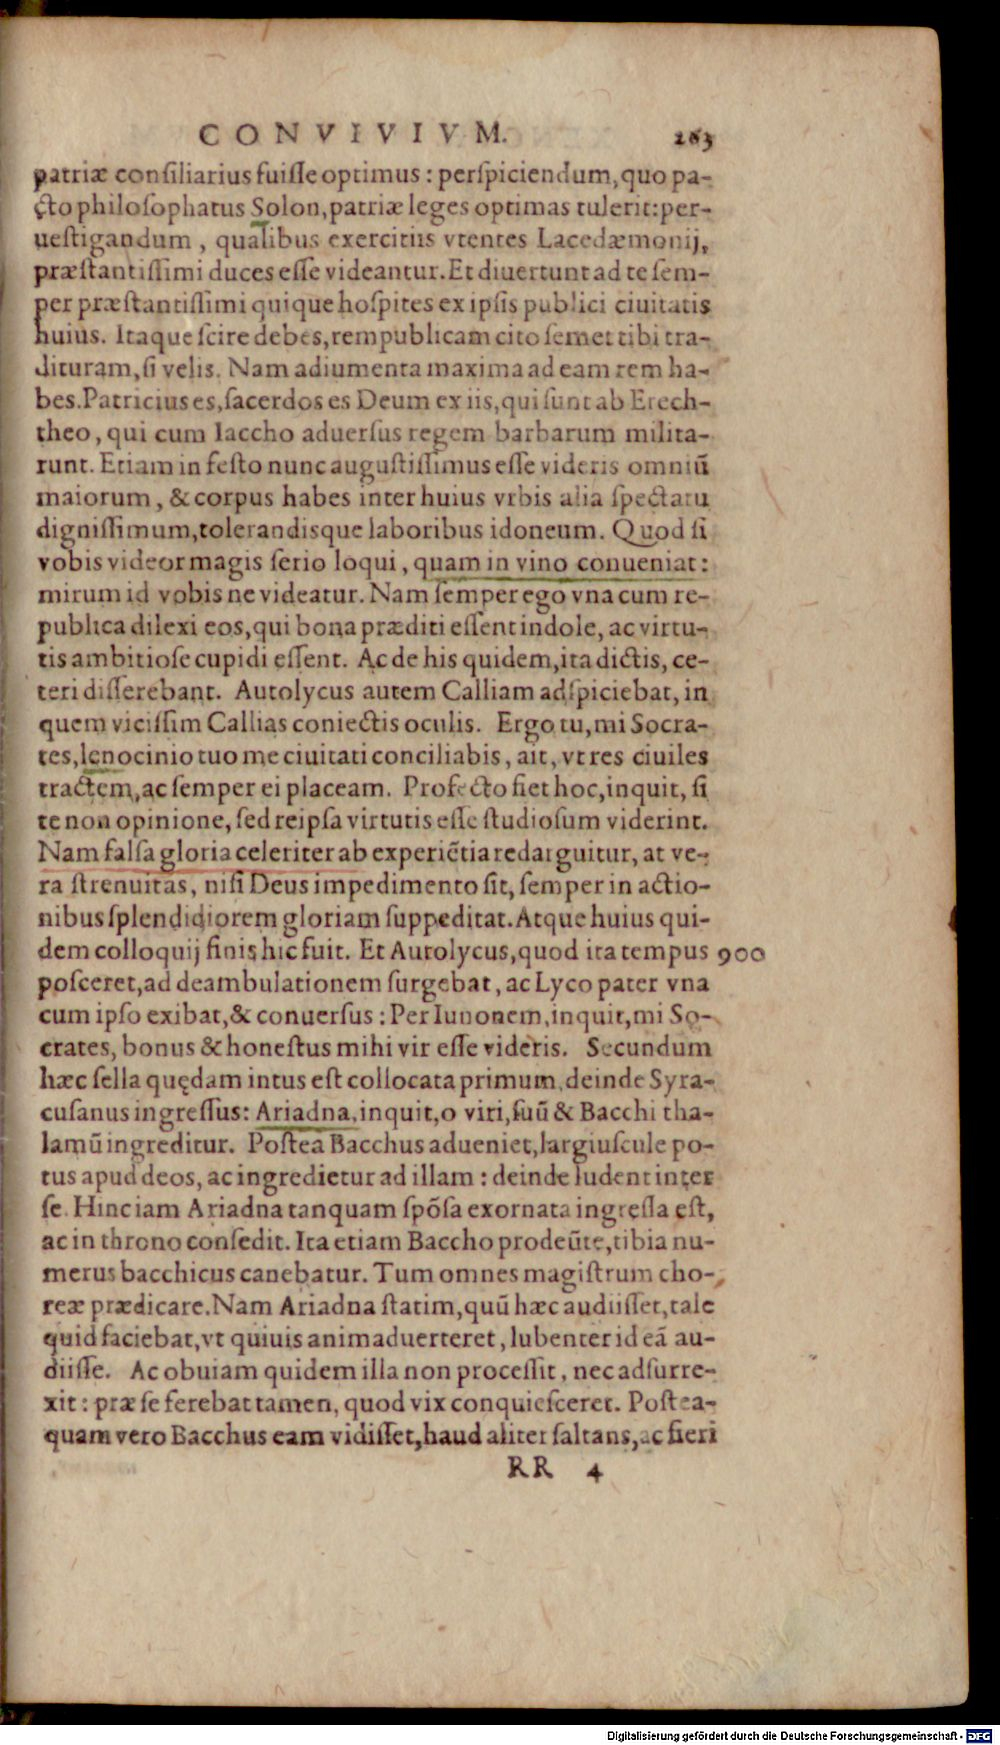 CONVIVIVM. 283
patriæ consiliarius fuisse optimus: perspiciendum, quo pa-
cto philosophatus Solon, patriæ leges optimas tulerit: per-
uestigandum, qualibus exercitiis vtentes Lacedæmonij,
præstantissimi duces esse videantur. Et diuertunt ad te sem-
per præstantissimi quique hospites ex ipsis publici ciuitatis
huius. Itaque scire debes, rempublicam cito semet tibi tra-
dituram, si velis. Nam adiumenta maxima ad eam rem ha-
bes. Patricius es, sacerdos es Deum ex iis, qui sunt ab Erech-
theo, qui cum Iaccho aduersus regem barbarum milita-
runt. Etiam in festo nunc augustissimus esse videris omniū
maiorum, & corpus habes inter huius vrbis alia spectatu
dignissimum, tolerandisque laboribus idoneum. Quod si
vobis videor magis serio loqui, quam in vino conueniat:
mirum id vobis ne videatur. Nam semper ego vna cum re-
publica dilexi eos, qui bona præditi essent indole, ac virtu-
tis ambitiose cupidi essent. Ac de his quidem, ita dictis, ce-
teri disserebant. Autolycus autem Calliam adspiciebat, in
quem vicissim Callias coniectis oculis. Ergo tu, mi Socra-
tes, lenocinio tuo me ciuitati conciliabis, ait, vt res ciuiles
tractem, ac semper ei placeam. Profecto fiet hoc, inquit, si
te non opinione, sed reipsa virtutis esse studiosum viderint.
Nam falsa gloria celeriter ab experiētia redarguitur, at ve-
ra strenuitas, nisi Deus impedimento sit, semper in actio-
nibus splendidiorem gloriam suppeditat. Atque huius qui-
dem colloquij finis hic fuit. Et Autolycus, quod ita tempus 900
posceret, ad deambulationem surgebat, ac Lyco pater vna
cum ipso exibat, & conuersus: Per Iunonem, inquit, mi So-
crates, bonus & honestus mihi vir esse videris. Secundum
hæc sella quędam intus est collocata primum, deinde Syra-
cusanus ingressus: Ariadna, inquit, o viri, suū & Bacchi tha-
lamū ingreditur. Postea Bacchus adueniet, largiuscule po-
tus apud deos, ac ingredietur ad illam: deinde ludent inter
se. Hinc iam Ariadna tanquam spōsa exornata ingressa est,
ac in throno consedit. Ita etiam Baccho prodeūte, tibia nu-
merus bacchicus canebatur. Tum omnes magistrum cho-
reæ prædicare. Nam Ariadna statim, quū hæc audiisset, tale
quid faciebat, vt quiuis animaduerteret, lubenter id eā au-
diisse. Ac obuiam quidem illa non processit, nec adsurre-
xit: præ se ferebat tamen, quod vix conquiesceret. Postea-
quam vero Bacchus eam vidisset, haud aliter saltans, ac fieri
RR 4
Digitalisierung gefördert durch die Deutsche Forschungsgemeinschaft - DFG